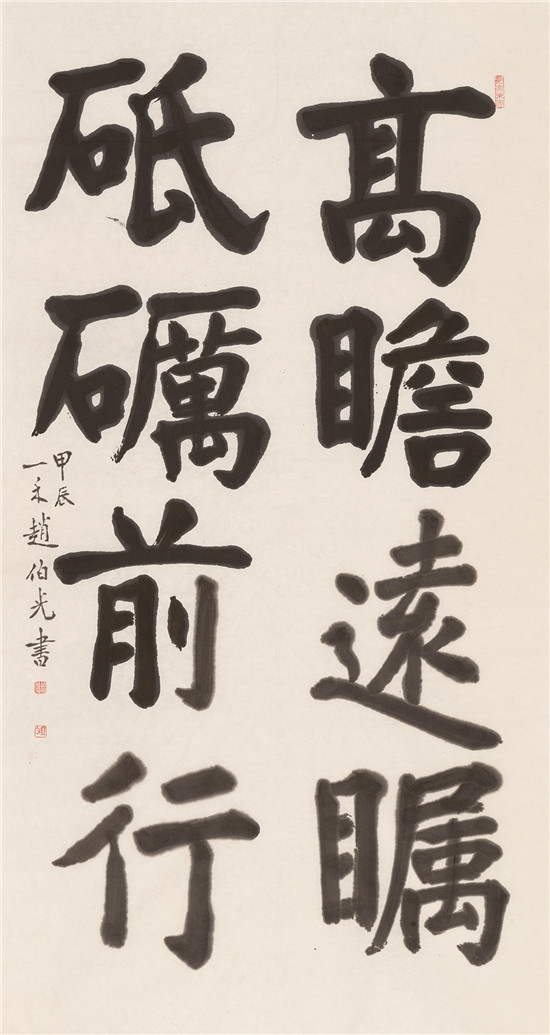 高瞻遠瞩
砥礪前行
甲辰
一禾趙伯光書